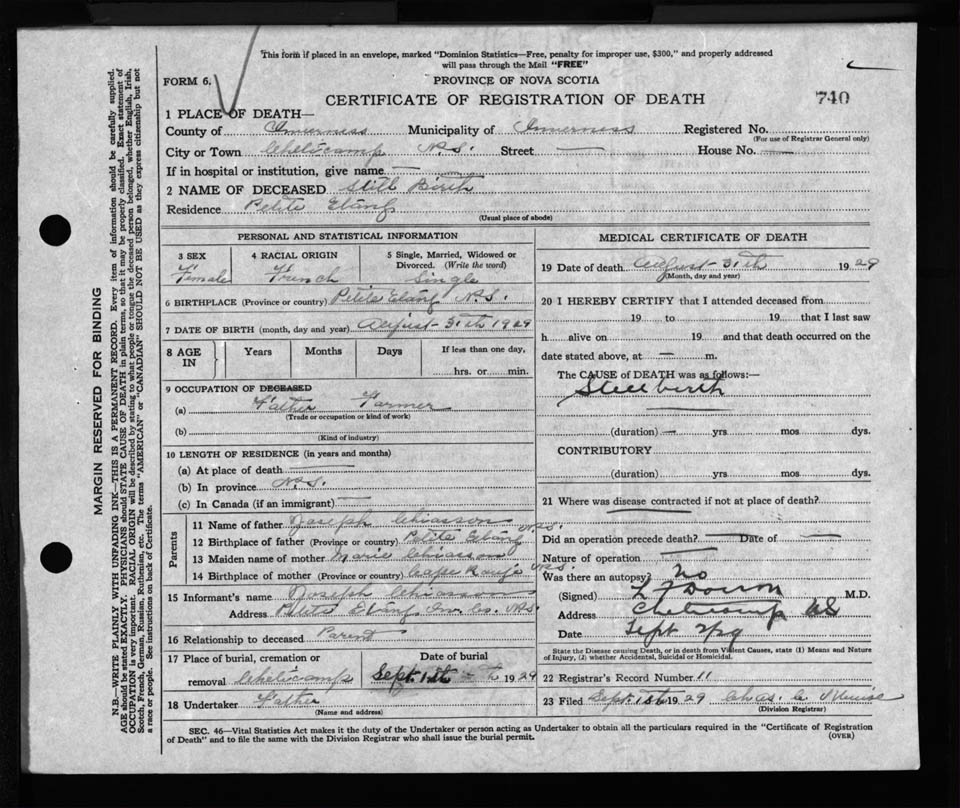 This form if placed in an envelope, marked "Dominion Statistics—Free, penalty for improper use, $300," and properly addressed
will pass through the Mail "FREE"
FORM 6.
PROVINCE OF NOVA SCOTIA
CERTIFICATE OF REGISTRATION OF DEATH
740
1 PLACE OF DEATH—
County of Inverness Municipality of Inverness Registered No.
(For use of Registrar General only)
City or Town Cheticamp N.S. Street — House No. —
If in hospital or institution, give name —
2 NAME OF DECEASED Still Birth
Residence Petite Etang
(Usual place of abode)
PERSONAL AND STATISTICAL INFORMATION
3 SEX 4 RACIAL ORIGIN 5 Single, Married, Widowed or
Divorced. (Write the word)
Female French Single
6 BIRTHPLACE (Province or country) Petite Etang N.S.
7 DATE OF BIRTH (month, day and year) August 31th 1929
8 AGE IN Years Months Days If less than one day,
hrs. or min.
9 OCCUPATION OF DECEASED
(a) Father Farmer
(Trade or occupation or kind of work)
(b)
(Kind of industry)
10 LENGTH OF RESIDENCE (in years and months)
(a) At place of death
(b) In province N.S.
(c) In Canada (if an immigrant) —
Parents
11 Name of father Joseph Chiasson
12 Birthplace of father Petite Etang N.S.
13 Maiden name of mother Marie Chiasson
14 Birthplace of mother (Province or country) Cape Rouge N.S.
15 Informant's name Joseph Chiasson
Address Petite Etang Inv. Co. N.S.
16 Relationship to deceased Parent
17 Place of burial, cremation or Date of burial
removal Cheticamp Sept. 1st 1929
18 Undertaker Father
(Name and address)
MEDICAL CERTIFICATE OF DEATH
19 Date of death August 31th 1929
(Month, day and year)
20 I HEREBY CERTIFY that I attended deceased from
19 to 19 that I last saw
h alive on 19 and that death occurred on the
date stated above, at — m.
The CAUSE of DEATH was as follows:—
Stillbirth
(duration) — yrs mos dys.
CONTRIBUTORY
(duration) yrs mos dys.
21 Where was disease contracted if not at place of death?
Did an operation precede death? — Date of —
Nature of operation
Was there an autopsy? No
(Signed) M.D.
Address Cheticamp NS
Date Sept 2/29
State the Disease causing Death, or in death from Violent Causes, state (1) Means and Nature
of Injury, (2) whether Accidental, Suicidal or Homicidal.
22 Registrar's Record Number 11
23 Filed Sept 1st 1929 Chas.
(Division Registrar)
SEC. 46—Vital Statistics Act makes it the duty of the Undertaker or person acting as Undertaker to obtain all the particulars required in the "Certificate of Registration
of Death" and to file the same with the Division Registrar who shall issue the burial permit.
(OVER)
MARGIN RESERVED FOR BINDING
N.B.—WRITE PLAINLY WITH UNFADING INK—THIS IS A PERMANENT RECORD. Every item of information should be carefully supplied.
AGE should be stated EXACTLY. PHYSICIANS should STATE CAUSE OF DEATH in plain terms, so that it may be properly classified. Exact statement of
OCCUPATION is very important. RACIAL ORIGIN will be described by stating to what people or tongue the deceased person belonged, whether English, Irish,
Scotch, French, German, Russian, Ruthenian, etc. The terms "AMERICAN" or "CANADIAN" SHOULD NOT BE USED as they express citizenship but not
a race or people. See instructions on back of Certificate.